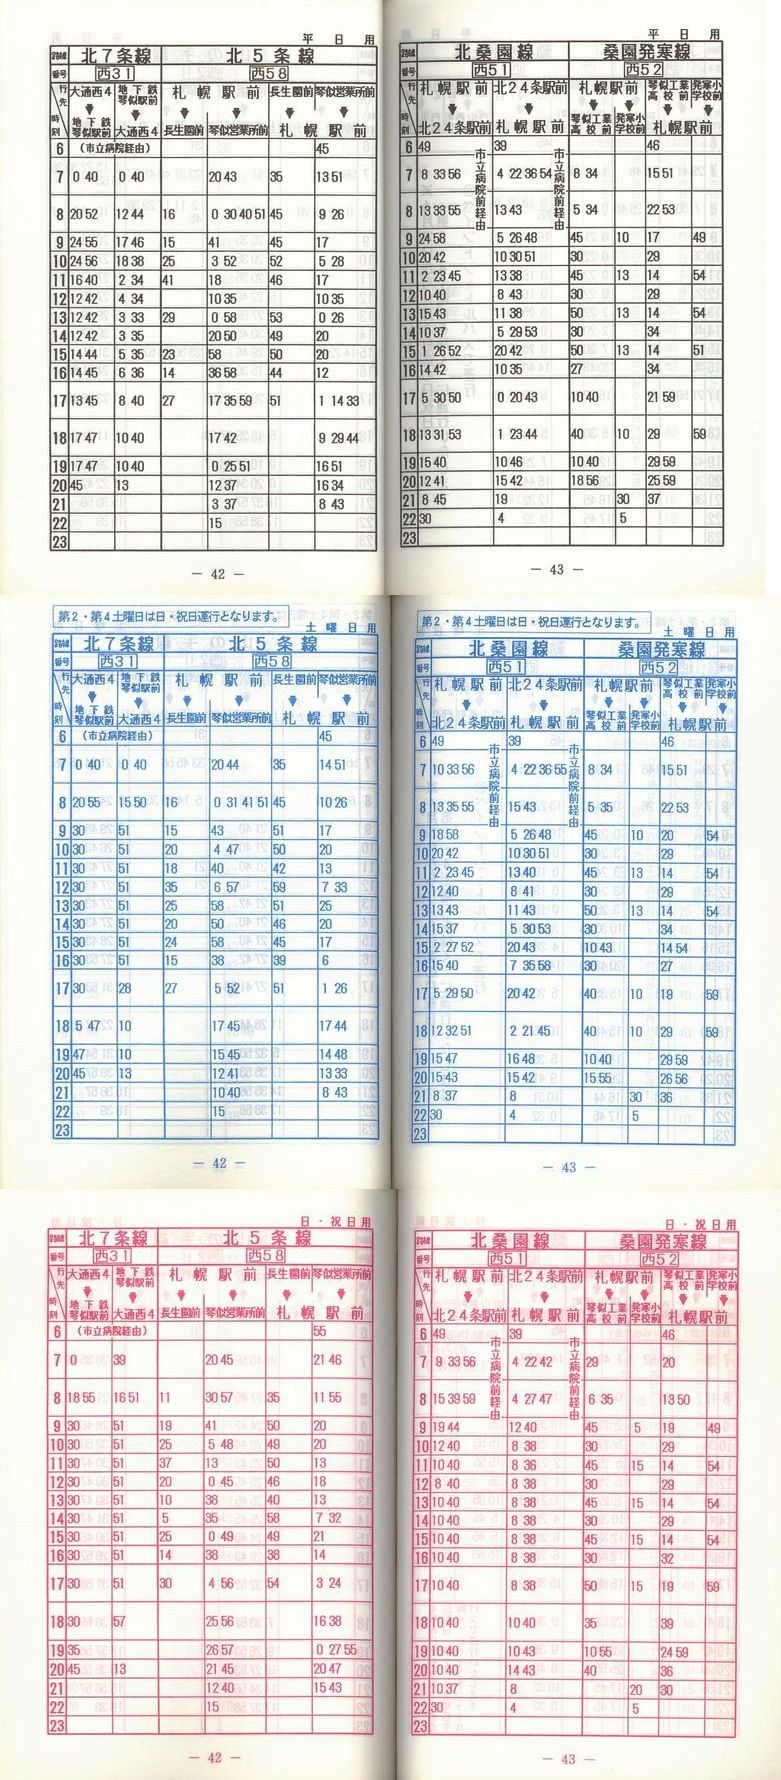 平日用
路線 北7条線 北5条線
番号 西31 西58
行先 大通西4 地下鉄琴似駅前 札幌駅前 長生園前 琴似営業所前
時刻 地下鉄琴似駅前 大通西4 長生園前 琴似営業所前 札幌駅前
6 (市立病院経由) 45
7 0 40 0 40 20 43 35 13 51
8 20 52 12 44 16 0 30 40 51 45 9 26
9 24 55 17 46 15 41 45 17
10 24 56 18 38 25 3 52 52 5 28
11 16 40 2 34 41 18 46 17
12 12 42 4 34 10 35 10 35
13 12 42 3 33 29 0 58 53 0 26
14 12 42 3 35 20 50 49 20
15 14 44 5 35 23 58 50 20
16 14 45 6 36 14 36 58 44 12
17 13 45 8 40 27 17 35 59 51 1 14 33
18 17 47 10 40 17 42 9 29 44
19 17 47 10 40 0 25 51 16 51
20 45 13 12 37 16 34
21 3 37 8 43
22 15
23
— 42 —
平日用
路線 北桑園線 桑園発寒線
番号 西51 西52
行先 札幌駅前 北24条駅前 札幌駅前 琴似工業高校前 発寒小学校前
時刻 北24条駅前 札幌駅前 琴似工業高校前 発寒小学校前 札幌駅前
市立病院前経由 市立病院前経由
6 49 39 46
7 8 33 56 4 22 36 54 8 34 15 51
8 13 33 55 13 43 5 34 22 53
9 24 58 5 26 48 45 10 17 49
10 20 42 10 30 51 30 29
11 2 23 45 13 38 45 13 14 54
12 10 40 8 43 30 29
13 15 43 11 38 50 13 14 54
14 10 37 5 29 53 30 34
15 1 26 52 20 42 50 13 14 51
16 14 42 10 35 27 34
17 5 30 50 0 20 43 10 40 21 59
18 13 31 53 1 23 44 40 10 29 59
19 15 40 10 46 10 40 29 59
20 12 41 15 42 18 56 25 59
21 8 45 19 30 37
22 30 4 5
23
— 43 —
第2・第4土曜日は日・祝日運行となります。
土曜日用
路線 北7条線 北5条線
番号 西31 西58
行先 大通西4 地下鉄琴似駅前 札幌駅前 長生園前 琴似営業所前
時刻 地下鉄琴似駅前 大通西4 長生園前 琴似営業所前 札幌駅前
6 (市立病院経由) 45
7 0 40 0 40 20 44 35 14 51
8 20 55 15 50 16 0 31 41 51 45 10 26
9 30 51 15 43 51 17
10 30 51 20 4 47 50 20
11 30 51 18 40 42 13
12 30 51 35 6 57 59 7 33
13 30 51 25 58 51 25
14 30 51 20 50 46 20
15 30 51 24 58 45 17
16 30 51 15 38 39 6
17 30 28 27 5 52 51 1 26
18 5 47 10 17 45 17 44
19 47 10 15 45 14 48
20 45 13 12 41 13 33
21 10 40 8 43
22 15
23
— 42 —
第2・第4土曜日は日・祝日運行となります。
土曜日用
路線 北桑園線 桑園発寒線
番号 西51 西52
行先 札幌駅前 北24条駅前 札幌駅前 琴似工業高校前 発寒小学校前
時刻 北24条駅前 札幌駅前 琴似工業高校前 発寒小学校前 札幌駅前
市立病院前経由 市立病院前経由
6 49 39 46
7 10 33 56 4 22 36 55 8 34 15 51
8 13 35 55 15 43 5 35 22 53
9 18 58 5 26 48 45 10 20 54
10 20 42 10 30 51 30 29
11 2 23 45 13 40 45 13 14 54
12 12 40 8 41 30 29
13 13 43 11 43 50 13 14 54
14 15 37 5 30 53 30 34
15 2 27 52 20 43 10 43 14 54
16 15 40 7 35 58 30 27
17 5 29 50 20 42 40 10 19 59
18 12 32 51 2 21 45 40 10 29 59
19 15 47 16 48 10 40 29 59
20 15 43 15 42 15 55 26 56
21 8 37 8 30 36
22 30 4 5
23
— 43 —
日・祝日用
路線 北7条線 北5条線
番号 西31 西58
行先 大通西4 地下鉄琴似駅前 札幌駅前 長生園前 琴似営業所前
時刻 地下鉄琴似駅前 大通西4 長生園前 琴似営業所前 札幌駅前
6 (市立病院経由) 55
7 0 39 20 45 21 46
8 18 55 16 51 11 30 57 35 11 55
9 30 51 19 41 50 20
10 30 51 25 5 48 49 20
11 30 51 37 13 50 13
12 30 51 20 0 45 46 18
13 30 51 10 38 40 13
14 30 51 5 35 58 7 32
15 30 51 25 0 49 49 21
16 30 51 14 38 38 14
17 30 51 30 4 56 54 3 24
18 30 57 25 56 16 38
19 35 26 57 0 27 55
20 45 13 21 45 20 47
21 12 40 15 43
22 15
23
— 42 —
日・祝日用
路線 北桑園線 桑園発寒線
番号 西51 西52
行先 札幌駅前 北24条駅前 札幌駅前 琴似工業高校前 発寒小学校前
時刻 北24条駅前 札幌駅前 琴似工業高校前 発寒小学校前 札幌駅前
市立病院前経由 市立病院前経由
6 49 39 46
7 9 33 56 4 22 42 29 20
8 15 39 59 4 27 47 6 35 13 50
9 19 44 12 40 45 5 19 49
10 12 40 8 38 30 29
11 10 40 8 36 45 15 14 54
12 8 40 8 38 30 29
13 10 40 8 38 45 15 14 54
14 10 40 8 38 30 29
15 10 40 8 38 45 15 14 54
16 10 40 8 38 30 32
17 10 40 8 38 50 15 19 59
18 10 40 10 40 35 39
19 10 40 10 43 10 55 24 59
20 10 40 14 43 40 36
21 10 37 8 20 30
22 30 4 5
23
— 43 —